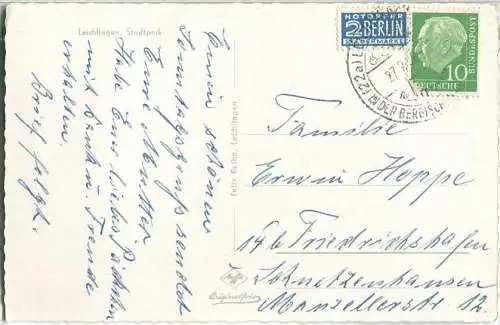 Leichlingen, Stadtpark
Einen schönen
Sonntagsgruß sendet
Eure Mutter
Habe Euer liebes Päckchen
mit Dank u. Freude
erhalten.
Brief folgt.
Leichlingen
Originalfoto
NOTOPFER
2 BERLIN
STEUERMARKE
10
DEUTSCHE
BUNDESPOST
(22a)
IN DER BERGISCH
Familie
Erwin Hoppe
14b Friedrichshafen
Schnetzenhausen
Manzellerstr. 12